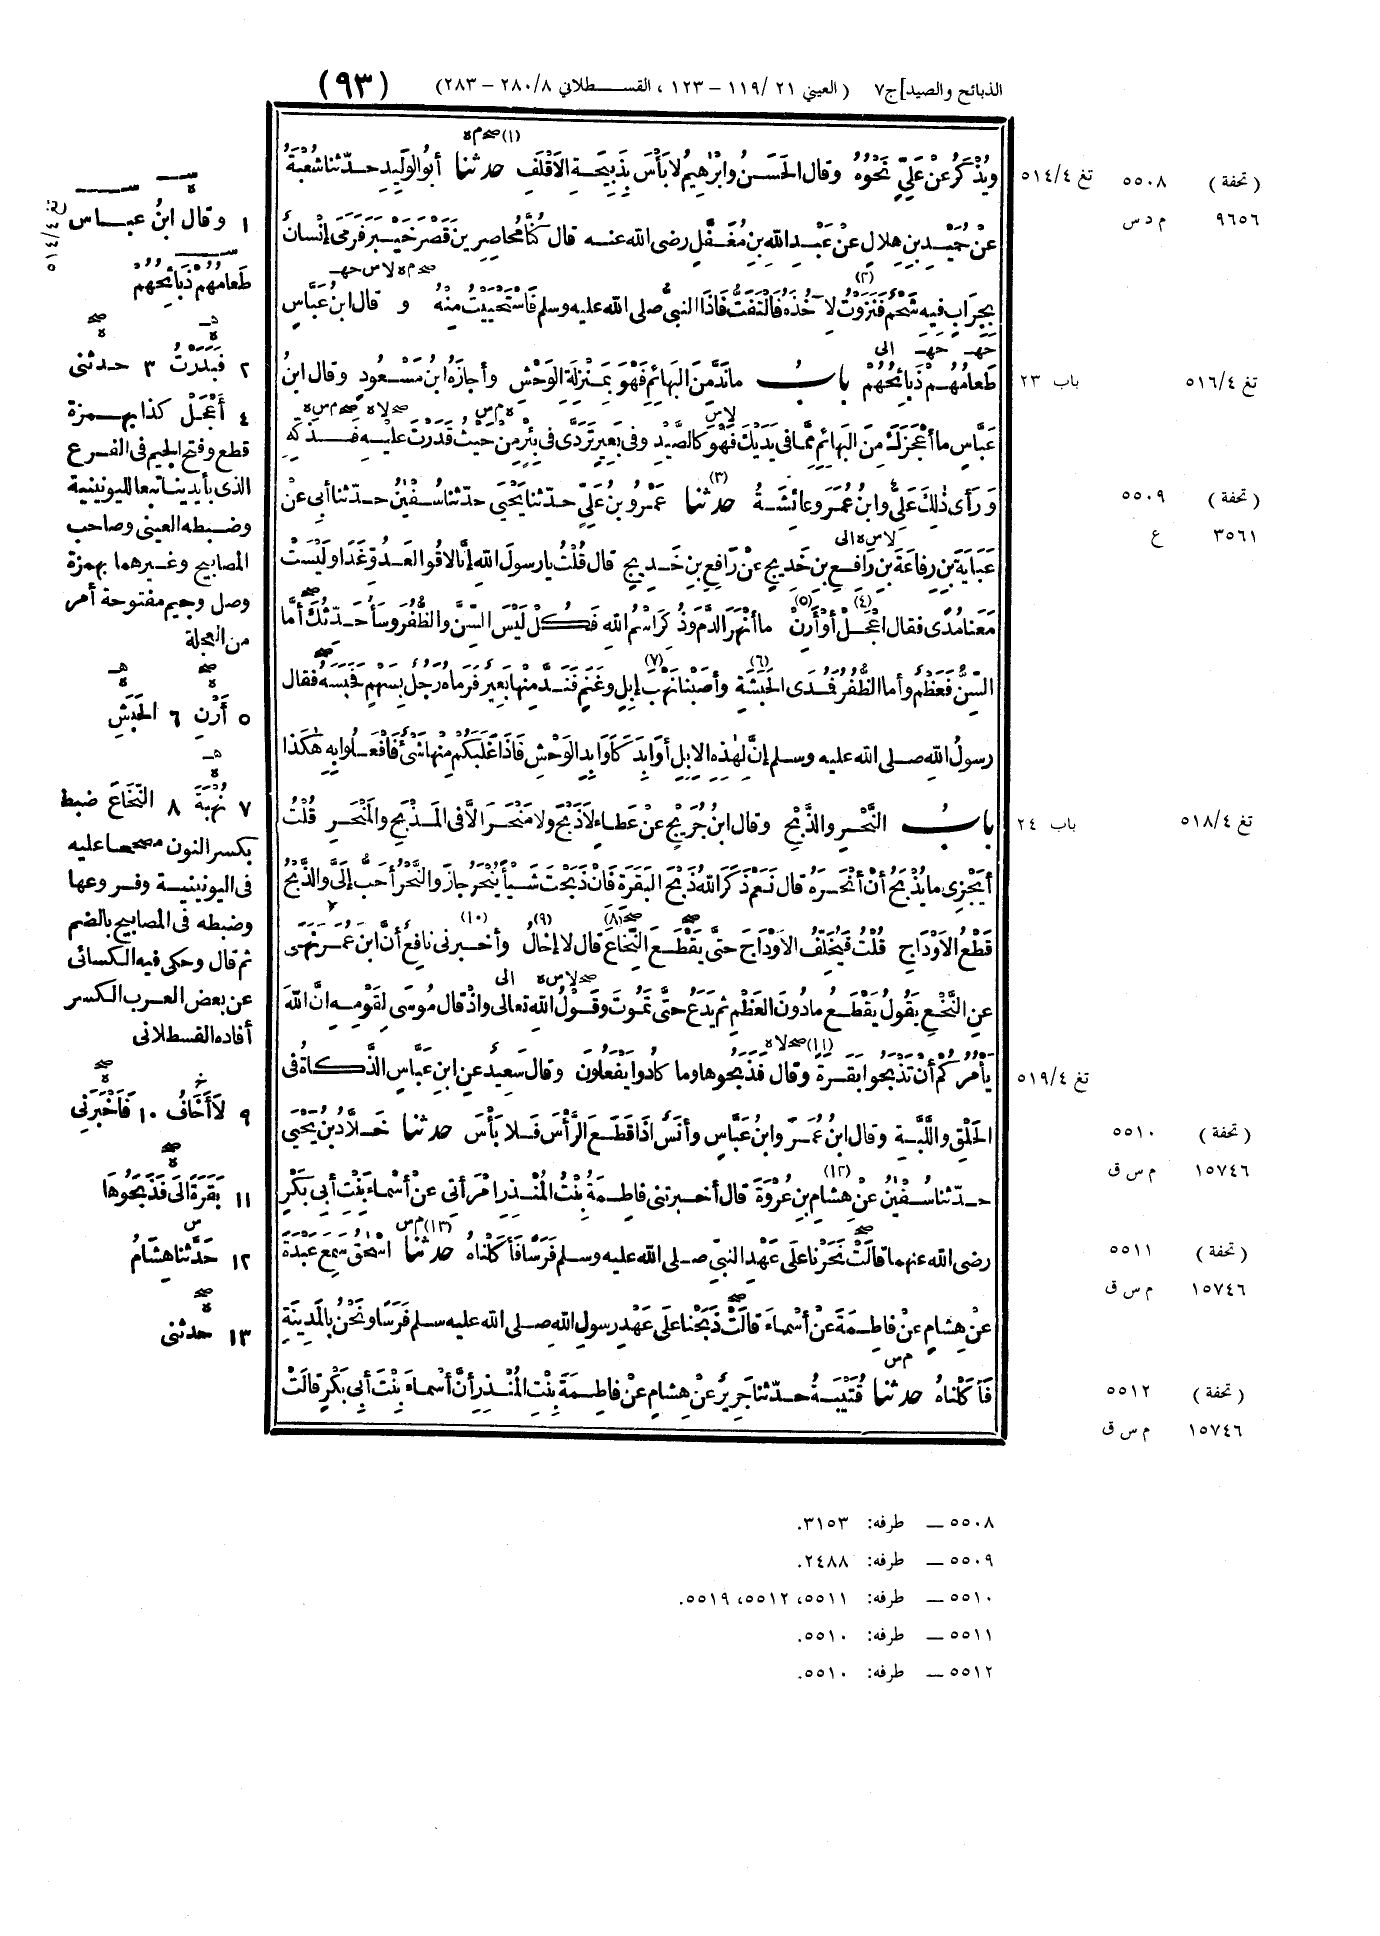 الذبائح والصيد] ج٧ (العيني ٢١/ ١١٩ – ١٢٣ ، القسطلاني ٨/ ٢٨٠ – ٢٨٣) (٩٣)
وَيُذْكَرُ عَنْ عَلِيٍّ نَحْوُهُ وقال الحَسَنُ وإبْرٰهِيمُ لا بَأْسَ بِذَبِيحَةِ الاَقْلَفِ (١) حدثنا أبوالوَلِيدِ حدّثنا شُعْبَةُ
عنْ حُمَيْدِ بنِ هِلالٍ عنْ عَبْدِ اللهِ بنِ مُغَفَّلٍ رضى الله عنه قال كُنَّا مُحاصِرِينَ قَصْرَ خَيْبَرَ فَرَمَى إنْسانٌ
بِجِرَابٍ فيه شَحْمٌ فَنَزَوْتُ (٢) لِآخُذَهُ فَالْتَفَتُّ فَاذَا النبىُّ صلى الله عليه وسلم فَاسْتَحْيَيْتُ مِنْهُ و قال ابنُ عَبَّاسٍ
طَعامُهُمْ ذَبَائِحُهُمْ بابُ ما نَدَّ مِنَ البَهائِمِ فَهْوَ بِمَنْزِلَةِ الوَحْشِ وأجازَهُ ابنُ مَسْعُودٍ وقال ابنُ
عَبَّاسٍ ما أعْجَزَكَ مِنَ البَهائِمِ مِمَّا فى يَدَيْكَ فَهْوَ كالصَّيْدِ وفى بَعِيرٍ تَرَدَّى فى بِئْرٍ مِنْ حَيْثُ قَدَرْتَ عليْهِ فَذَكِّهِ
وَرَأى ذٰلِكَ عَلِىٌّ وابنُ عُمَرَ وعائِشَةُ (٣) حدثنا عَمْرُو بنُ عَلِيٍّ حدّثنا يَحْيَى حدّثنا سُفْيٰنُ حدّثنا أبى عنْ
عَبَايَةَ بنِ رِفاعَةَ بنِ رَافِعِ بنِ خَدِيجٍ عنْ رَافِعِ بنِ خَدِيجٍ قال قُلْتُ يارسولَ اللهِ إنَّا لاقُو العَدُوِّ غَدًا ولَيْسَتْ
مَعَنا مُدًى فقال اعْجَلْ (٤) أوْ أَرِنْ (٥) ما أنْهَرَ الدَّمَ وذُكِرَ اسْمُ اللهِ فَكُلْ لَيْسَ السِّنَّ والظُّفُرَ وسأُحَدِّثُكَ أمَّا
السِّنُّ فَعَظْمٌ وأما الظُّفُرُ فَمُدَى الحَبَشَةِ (٦) وأصَبْنا نَهْبَ (٧) إبِلٍ وغَنَمٍ فَنَدَّ مِنْها بَعِيرٌ فَرَماهُ رَجُلٌ بِسَهْمٍ فَحَبَسَهُ فقال
رسولُ اللهِ صلى الله عليه وسلم إنَّ لِهٰذِهِ الاِبِلِ أوَابِدَ كَأوَابِدِ الوَحْشِ فَاذَا غَلَبَكُمْ مِنْها شَىْءٌ فَافْعَلُوا بِهِ هٰكَذا
بابُ النَّحْرِ والذَّبْحِ وقال ابنُ جُرَيْجٍ عنْ عَطاءٍ لاذَبْحَ ولا مَنْحَرَ الاَّ فى المَذْبَحِ والمَنْحَرِ قُلْتُ
أيَجْزِى ما يُذْبَحُ أنْ أنْحَرَهُ قال نَعَمْ ذَكَرَ اللهُ ذَبْحَ البَقَرَةِ فَانْ ذَبَحْتَ شَيْأً يُنْحَرُ جازَ والنَّحْرُ أحَبُّ إلَىَّ والذَّبْحُ
قَطْعُ الاَوْدَاجِ قُلْتُ فَيُخَلِّفُ الاَوْدَاجَ حتَّى يَقْطَعَ النِّخَاعَ (٨) قال لا إخالُ (٩) وأخبرنى (١٠) نافِعٌ أنَّ ابنَ عُمَرَ نَهَى
عنِ النَّخْعِ يَقُولُ يَقْطَعُ ما دُونَ العَظْمِ ثمَّ يَدَعُ حتَّى تَمُوتَ وقَوْلُ اللهِ تعالى واذْ قال مُوسَى لِقَوْمِهِ انَّ اللهَ
يَأْمُرُكُمْ أنْ تَذْبَحُوا بَقَرَةً (١١) وقال فَذَبَحُوها وما كادُوا يَفْعَلُونَ وقال سَعِيدٌ عنِ ابنِ عَبَّاسٍ الذَّكاةُ فى
الحَلْقِ واللَّبَّةِ وقال ابنُ عُمَرَ وابنُ عَبَّاسٍ وأنَسٌ اذَا قَطَعَ الرَّأْسَ فَلا بَأْسَ حدثنا خَلاَّدُ بنُ يَحْيَى
حدّثنا سُفْيٰنُ عنْ هِشامِ (١٢) بنِ عُرْوَةَ قال أخبرتنى فاطِمَةُ بِنْتُ المُنْذِرِ امْرَأتِى عنْ أسْماءَ بِنْتِ أبى بَكْرٍ
رضى الله عنهما قالَتْ نَحَرْنا عَلَى عَهْدِ النبيِّ صلى الله عليه وسلم فَرَسًا فَأكَلْناهُ (١٣) حدثنا اسْحٰقُ سَمِعَ عَبْدَةَ
عنْ هِشامٍ عنْ فاطِمَةَ عنْ أسْماءَ قالَتْ ذَبَحْنا عَلَى عَهْدِ رسولِ اللهِ صلى الله عليه وسلم فَرَسًا ونَحْنُ بِالمَدِينَةِ
فَأكَلْناهُ حدثنا قُتَيْبَةُ حدّثنا جَرِيرٌ عنْ هِشامٍ عنْ فاطِمَةَ بِنْتِ المُنْذِرِ أنَّ أسْماءَ بِنْتَ أبى بَكْرٍ قالَتْ
(تحفة) ٥٥٠٨ تغ ٤/ ٥١٤
٩٦٥٦ م د س
تغ ٤/ ٥١٦ باب ٢٣
(تحفة) ٥٥٠٩
٣٥٦١ ع
تغ ٤/ ٥١٨ باب ٢٤
تغ ٤/ ٥١٩
(تحفة) ٥٥١٠
١٥٧٤٦ م س ق
(تحفة) ٥٥١١
١٥٧٤٦ م س ق
(تحفة) ٥٥١٢
١٥٧٤٦ م س ق
تغ ٤/ ٥١٤
١ وقال ابنُ عباس
طَعامُهُمْ ذَبَائِحُهُمْ
٢ فَبَدَرْتُ ٣ حدثنى
٤ أَعْجَلْ كذا بهمزة
قطع وفتح الجيم فى الفرع
الذى بأيدينا تبعا لليونينية
وضبطه العينى وصاحب
المصابيح وغيرهما بهمزة
وصل وجيم مفتوحة أمر
من العجلة
٥ أَرْنِ ٦ الحَبَشِ
٧ نُهْبَةَ ٨ النِّخَاعَ ضبط
بكسر النون مصححا عليه
فى اليونينية وفروعها
وضبطه فى المصابيح بالضم
ثم قال وحكى فيه الكسائى
عن بعض العرب الكسر
أفاده القسطلانى
٩ لاَأَخَافُ ١٠ فَأَخْبَرَنِى
١١ بَقَرَةً الَى فَذَبَحُوهَا
١٢ حَدَّثَنا هِشَامُ
١٣ حدثنى
٥٥٠٨ ـ طرفه: ٣١٥٣.
٥٥٠٩ ـ طرفه: ٢٤٨٨.
٥٥١٠ ـ طرفه: ٥٥١١، ٥٥١٢، ٥٥١٩.
٥٥١١ ـ طرفه: ٥٥١٠.
٥٥١٢ ـ طرفه: ٥٥١٠.